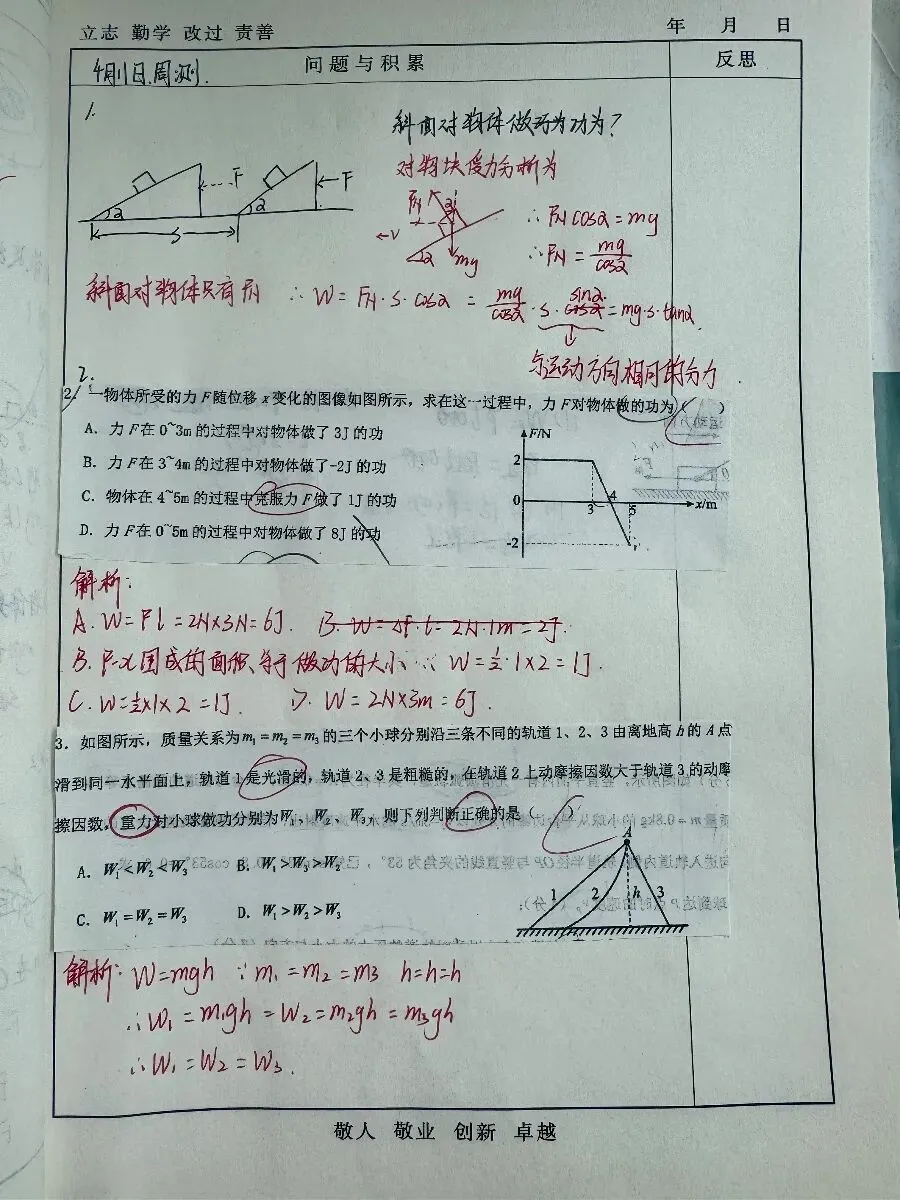 立志 勤学 改过 责善
年 月 日
问题与积累
反思
4月1日.周测.
1.
斜面对物体做功为功为?
F
F
α
α
S
对物块受力分析为
FN
α
V
mg
α
∴ FN cosα = mg
∴ FN = mg/cosα
斜面对物体只有FN ∴ W = FN·S·cosα = mg/cosα · S · cosα sinα = mg·s·tanα.
与运动方向相同的分力
2.
2. 一物体所受的力F随位移x变化的图像如图所示,求在这一过程中,力F对物体做的功为( )
A. 力F在0~3m的过程中对物体做了3J的功
B. 力F在3~4m的过程中对物体做了-2J的功
C. 物体在4~5m的过程中克服力F做了1J的功
D. 力F在0~5m的过程中对物体做了8J的功
F/N
2
0
3
4
5
x/m
-2
解析:
A. W = Fl = 2N×3N = 6J. B. W = ΔF·l = 2N·1m = 2J.
B. F-x围成的面积等于做功的大小 ∴ W = ½·1×2 = 1J.
C. W = ½×1×2 = 1J. D. W = 2N×3m = 6J.
3. 如图所示,质量关系为m₁=m₂=m₃的三个小球分别沿三条不同的轨道1、2、3由离地高h的A点
滑到同一水平面上,轨道1是光滑的,轨道2、3是粗糙的,在轨道2上动摩擦因数大于轨道3的动摩
擦因数,重力对小球做功分别为W₁、W₂、W₃,则下列判断正确的是( )
A. W₁<W₂<W₃ B. W₁>W₃>W₂
C. W₁=W₂=W₃ D. W₁>W₂>W₃
A
1
2
h
3
解析: W=mgh ∵ m₁=m₂=m3 h=h=h
∴ W₁ = m₁gh = W₂ = m₂gh = m₃gh
∴ W₁ = W₂ = W₃.
敬人 敬业 创新 卓越